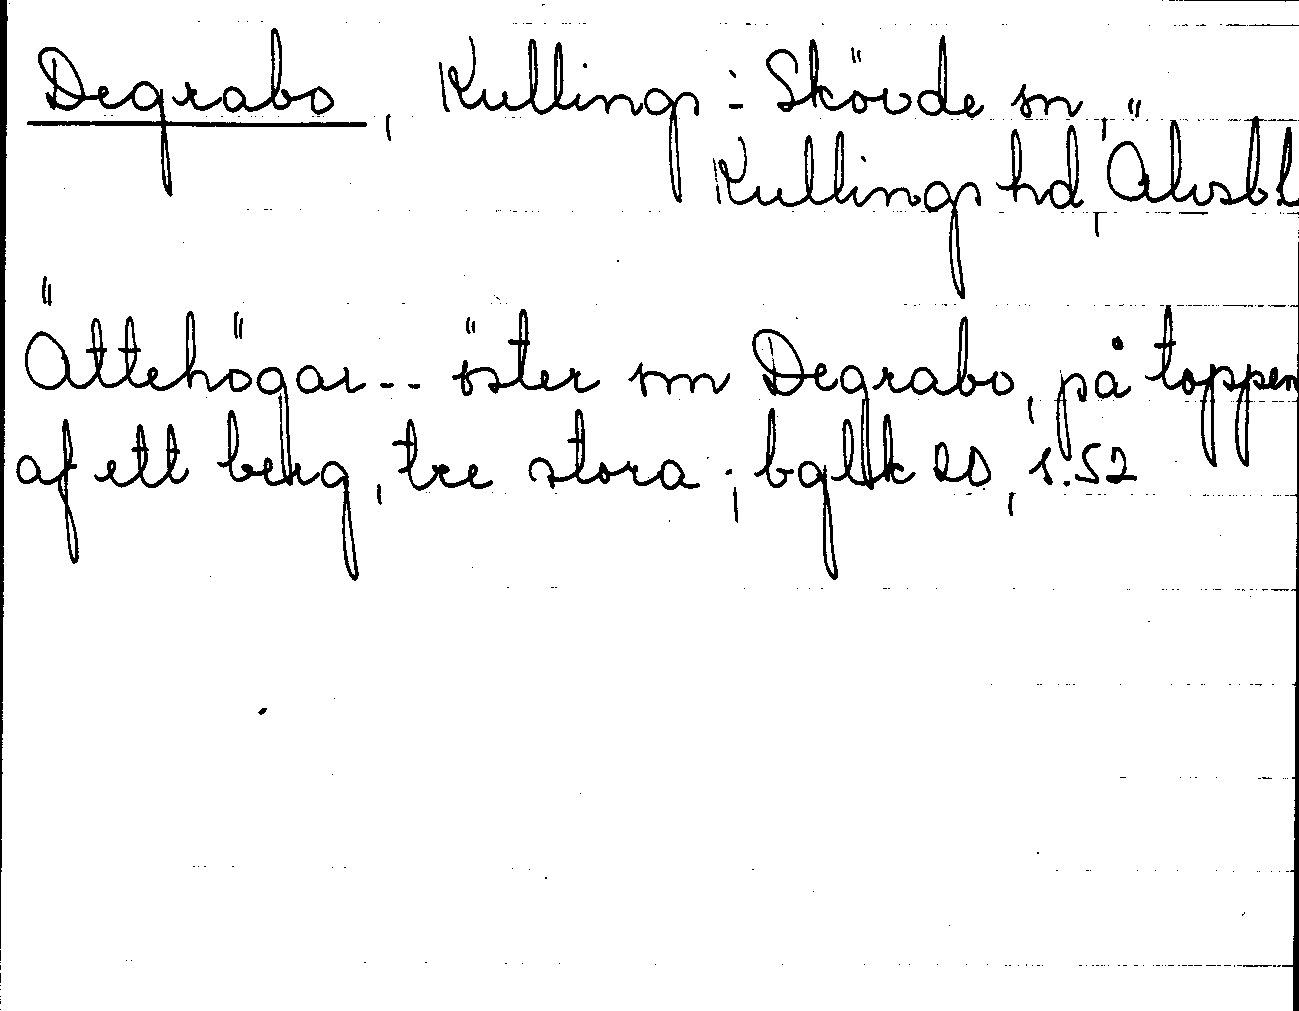 Degrabo, Kullings-Skövde sn,
Kullings hd, Älvsbl
Ättehögar-- öster om Degrabo, på toppen
af ett berg, tre stora; bglk 20, s.52